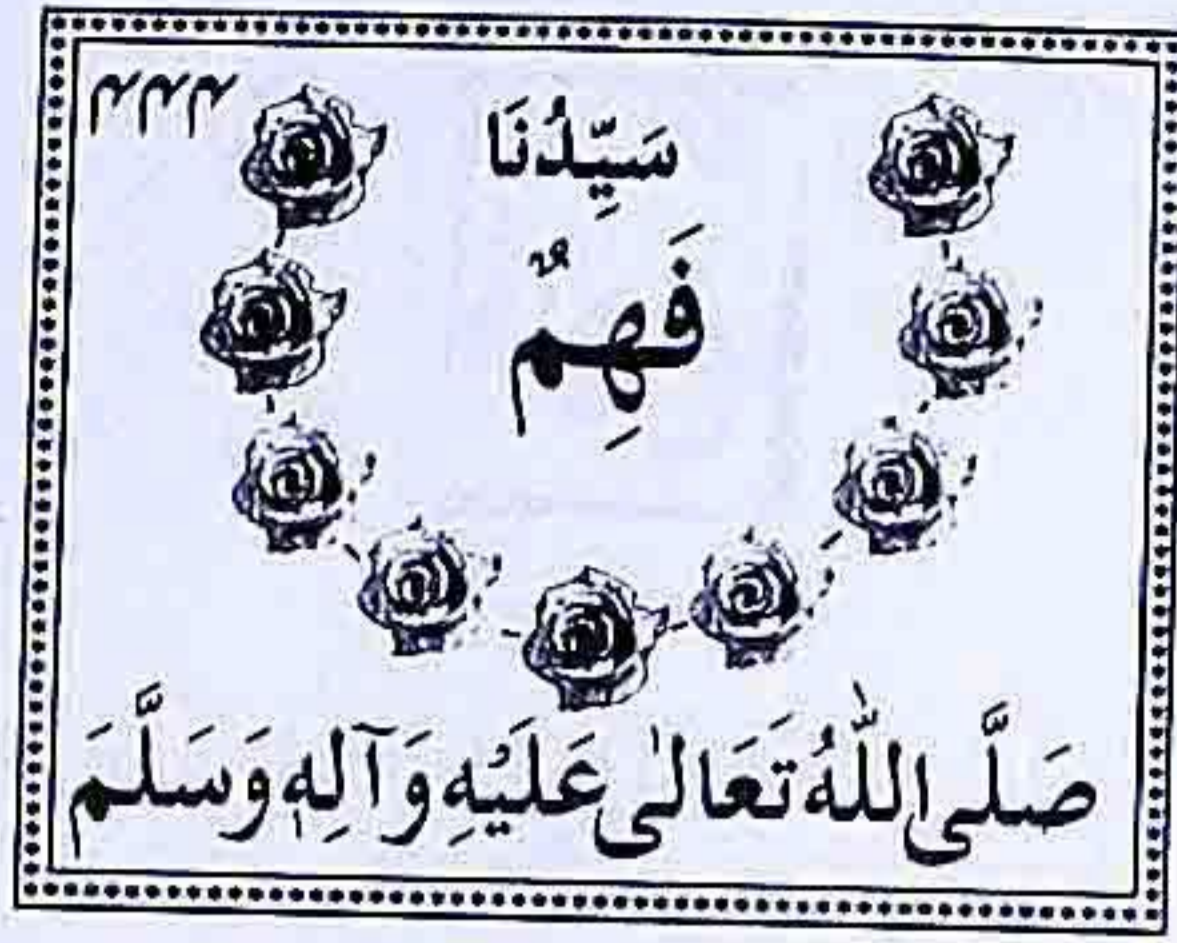 ۴۴۴
سَيِّدُنَا
فَهِمٌ
صَلَّى اللّٰهُ تَعَالٰى عَلَيْهِ وَآلِهٖ وَسَلَّمَ